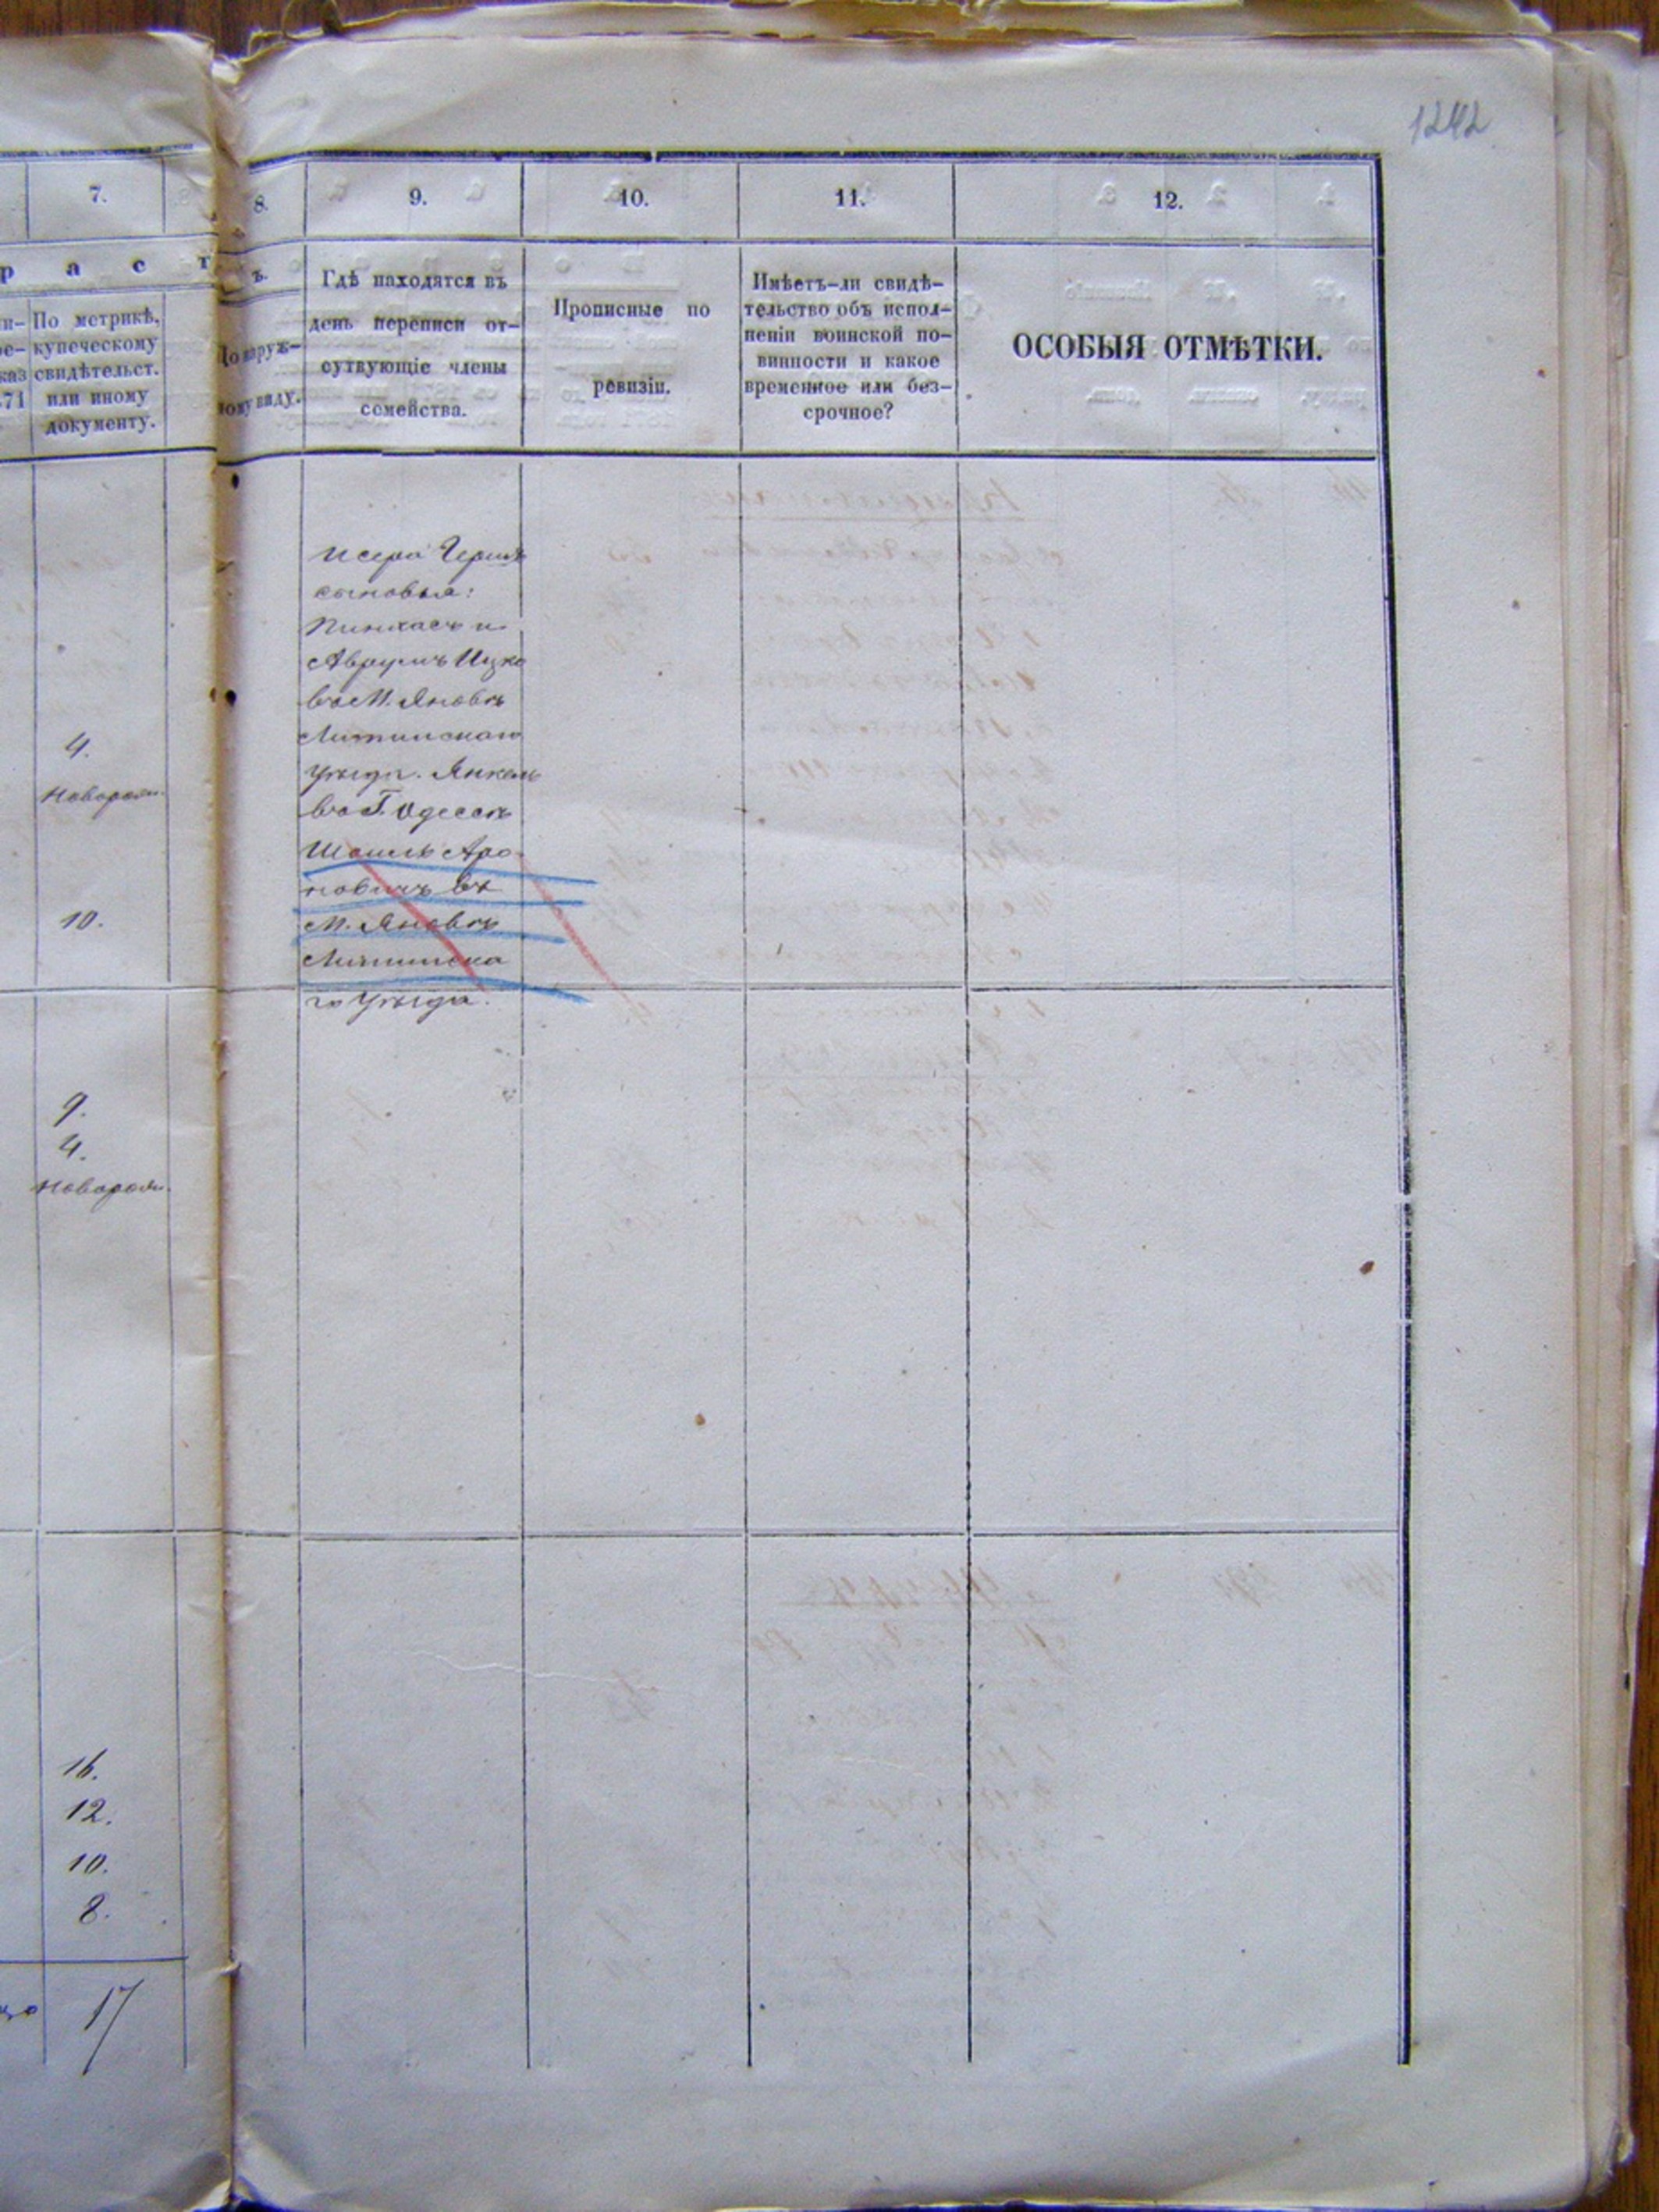 1242
7.
8.
9.
10.
11.
12.
р а с т
ъ.
По метрикѣ,
купеческому
свидѣтельст.
или иному
документу.
По наруж-
ному виду.
Гдѣ находятся въ
день переписи от-
сутвующіе члены
семейства.
Прописные по
ревизіи.
Имѣетъ-ли свидѣ-
тельство объ испол-
неніи воинской по-
винности и какое
временное или без-
срочное?
ОСОБЫЯ ОТМѢТКИ.
сыновья:
Пинхасъ и
Аврумъ Ицко
въ М. Яновѣ
Литинскаго
уѣзда. Янкель
въ Г. Одессѣ
Шмиль Аро
новичъ въ
М. Яновѣ
Литинска
го уѣзда.
4.
Новорож.
10.
9.
4.
Новорож.
16.
12.
10.
8.
17